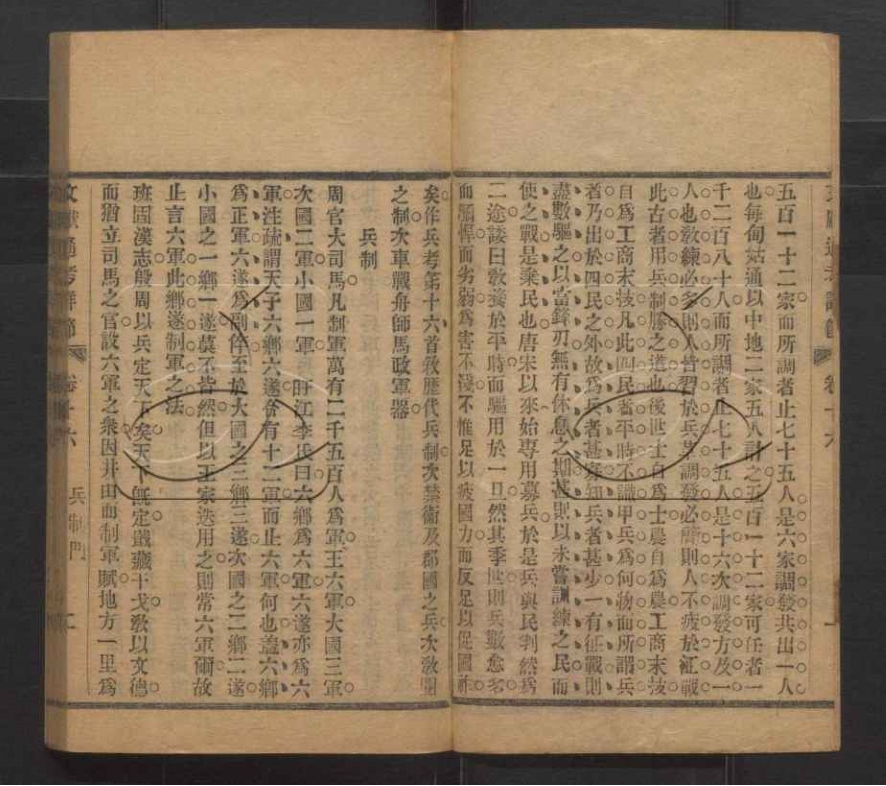 五百一十二家而所調者止七十五人是六家調發共出一人
也每甸姑通以中地二家五人計之五百一十二家可任者一
千二百八十人而所調者止七十五人是十六次調發方及一
人也教練必多則人皆習於兵革調發必簡則人不疲於征戰
此古者用兵制勝之道也後世士自爲士農自爲農工商末技
自爲工商末技凡此四民者平時不識甲兵爲何物而所謂兵
者乃出於四民之外故爲兵者甚寡知兵者甚少一有征戰則
盡數驅之以當鋒刃無有休息之期甚則以未嘗訓練之民而
使之戰是棄民也唐宋以來始專用募兵於是兵與民判然爲
二途諉曰教養於平時而驅用於一旦然其季世則兵數愈多
而驕悍而劣弱爲害不淺不惟足以疲國力而反足以促國祚
矣作兵考第十六首敘歷代兵制次禁衛及郡國之兵次教閱
之制次車戰舟師馬政軍器
兵制
周官大司馬凡制軍萬有二千五百人爲軍王六軍大國三軍
次國二軍小國一軍 盱江李氏曰六鄉爲六軍六遂亦爲六
軍注疏謂天子六鄉六遂合有十二軍而止六軍何也蓋六鄉
爲正軍六遂爲副倅至於大國之三鄉三遂次國之二鄉二遂
小國之一鄉一遂莫不皆然但以王家迭用之則常六軍爾故
止言六軍此鄉遂制軍之法
班固漢志殷周以兵定天下矣天下既定戢藏干戈教以文德
而猶立司馬之官設六軍之衆因井田而制軍賦地方一里爲
文獻通考詳節 卷十六 兵制門 二